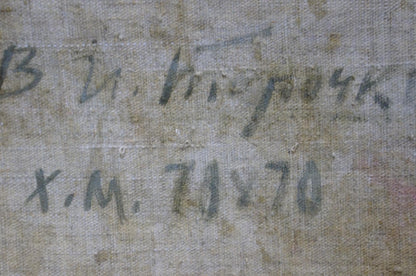 В И. Торочк
х.м. 70х70